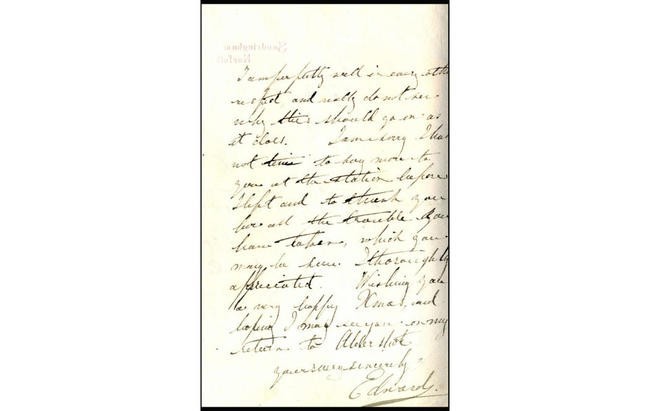 Sandringham
Norfolk
I am perfectly well in every other
respect, and really do not see
why this should go on as
it does. I am sorry I had
not time to say more to
you at the station before
I left and to thank you
for all the trouble you
have taken, which you
may be sure I thoroughly
appreciated. Wishing you
a very happy Xmas, and
hoping I may see you on my
return to Aldershot
yours very sincerely
Edward.